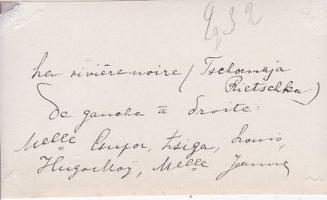 La rivière noire (Tschornaja
Rietschka)
de gauche à droite:
Melle Csupor, Louis,
Melle Jeanne